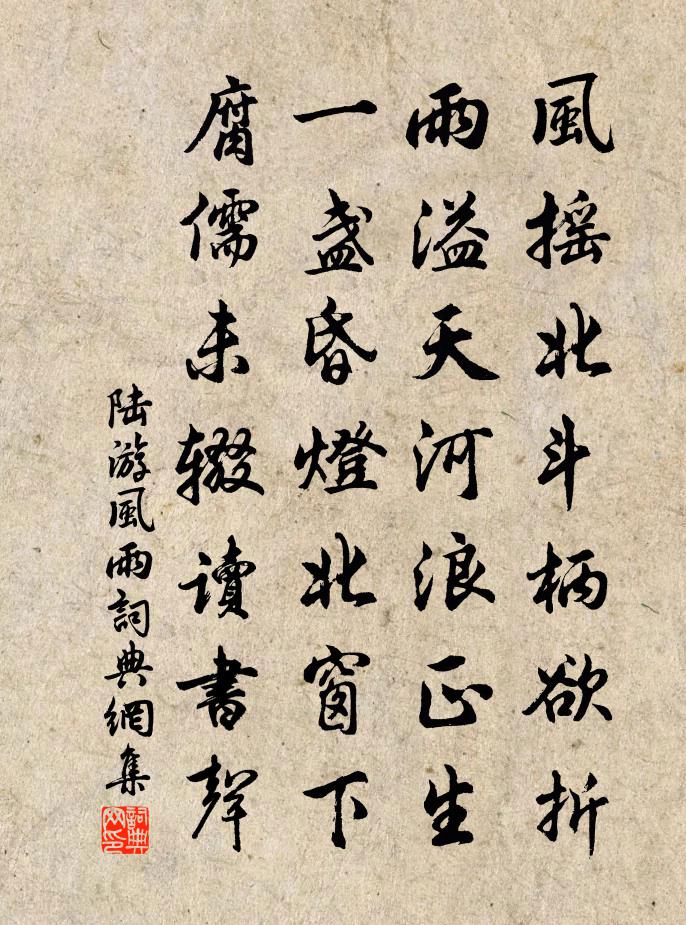 風摇北斗柄欲折
雨溢天河浪正生
一盏昏燈北窗下
腐儒未辍讀書聲
陆游風雨詞典網集
詞典网印